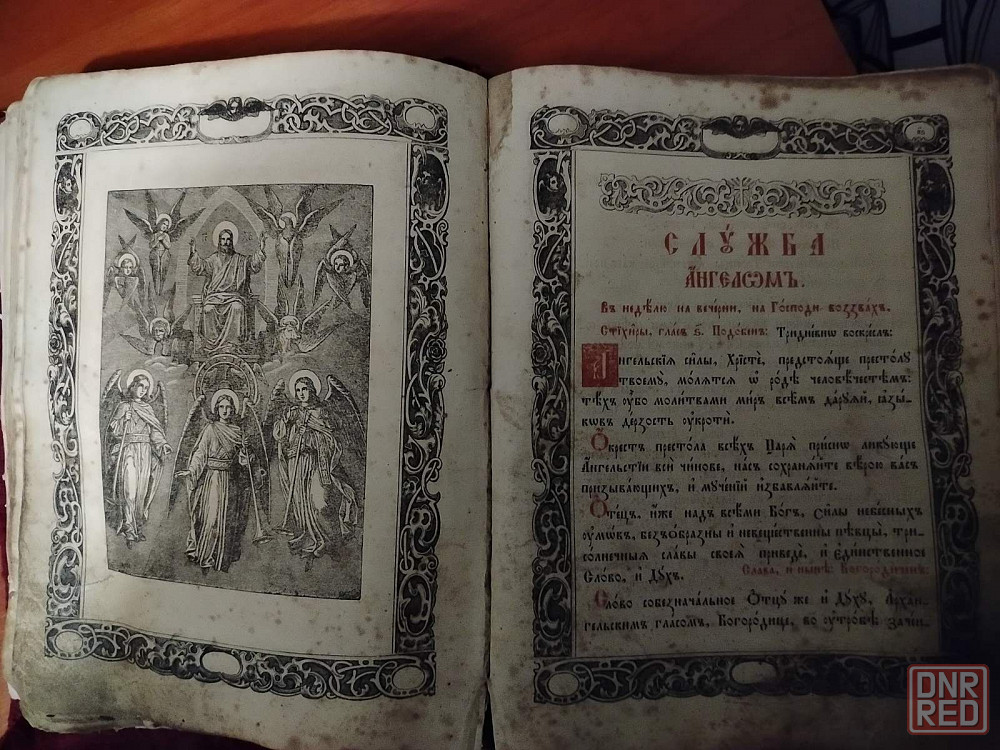 СЛꙋ́ЖБА
А҆́НГЕЛѠМЪ.
Въ недѣ́лю на вече́рни, на Го́споди воззва́хъ.
Стїхи̑ры, гла́съ ѕ҃. Подо́бенъ: Тридне́внѡ воскре́слъ:
А҆́нгельскїѧ си̑лы, Хрⷭ҇тѐ, предстоѧ́ще престо́лꙋ
твоемꙋ̀, мо́лѧтсѧ ѡ҆ ро́дѣ человѣ́честѣмъ:
тѣ́хъ ᲂу҆̀бо моли́твами ми́ръ всѣ̑мъ да́рꙋй, ꙗ҆зы́-
кѡвъ де́рзость ᲂу҆кротѝ.
Ѻ҆́крестъ престо́ла всѣ́хъ Царѧ̀ при́снѡ ликꙋ́юще
А҆́нгельстїи всѝ чи́нове, на́съ сохранѧ́йте вѣ́рою ва́съ
призыва́ющихъ, и҆ мꙋче́нїй и҆збавлѧ́йте.
Ѻ҆те́цъ, и҆́же над̾ всѣ́ми Бг҃ъ, си̑лы небе́сныхъ
ᲂу҆мѡ́въ, без̾ѻбра̑зны и҆ невеще́ствєнны пѣвцы̀, три-
со́лнечныѧ сла́вы своеѧ̀ приведѐ, и҆ є҆ди́нственное
Сло́во, и҆ Дꙋ́хъ. Сла́ва, и҆ ны́нѣ: Богоро́диченъ:
Сло́во собезнача́льное Ѻ҆тцꙋ́ же и҆ Дꙋ́хꙋ, А҆рха́н-
гельскимъ гла́сомъ, Богоро́дице, во ᲂу҆тро́бѣ зача́-
DNR
RED